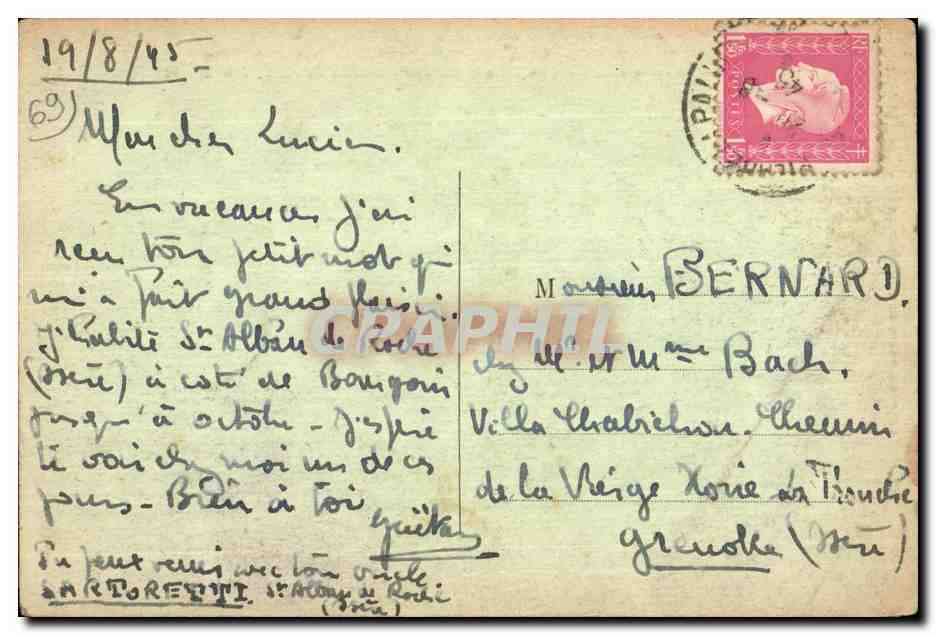 19/8/45
69
Mon cher Lucien.
En vacances j'ai
reçu ton petit mot qui
m'a fait grand plaisir.
J'habite St Alban de Roche
(Isère) à coté de Bourgoin
jusqu'à octobre - J'espère
te voir chez moi un de ces
jours - Bien à toi
Gaëtan
Tu peux venir avec ton oncle
SARTORETTI St Alban de Roche
(Isère)
RF
1F50
POSTES
1F50
Monsieur BERNARD.
chez Mr. et Mme Bach.
Villa Chabichou - Chemin
de la Vierge Noire La Tronche
Grenoble (Isère)
CPAPHIL